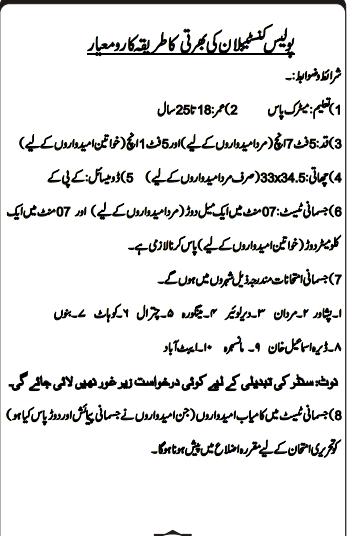 پولیس کنسٹیبلان کی بھرتی کا طریقہ کار و معیار
شرائط و ضوابط:۔
1) تعلیم: میٹرک پاس 2) عمر: 18 تا 25 سال
3) قد: 5 فٹ 7 انچ (مرد امیدواروں کے لیے) اور 5 فٹ 1 انچ (خواتین امیدواروں کے لیے)
4) چھاتی: 33x34.5 (صرف مرد امیدواروں کے لیے) 5) ڈومیسائل: کے پی کے
6) جسمانی ٹیسٹ: 07 منٹ میں ایک میل دوڑ (مرد امیدواروں کے لیے) اور 07 منٹ میں ایک
کلومیٹر دوڑ (خواتین امیدواروں کے لیے) پاس کرنا لازمی ہے۔
7) جسمانی امتحانات مندرجہ ذیل شہروں میں ہوں گے۔
۱۔ پشاور ۲۔ مردان ۳۔ دیر لوئیر ۴۔ مینگورہ ۵۔ چترال ۶۔ کوہاٹ ۷۔ بنوں
۸۔ ڈیرہ اسماعیل خان ۹۔ مانسہرہ ۱۰۔ ایبٹ آباد
نوٹ: سنٹر کی تبدیلی کے لیے کوئی درخواست زیر غور نہیں لائی جائے گی۔
8) جسمانی ٹیسٹ میں کامیاب امیدواروں (جن امیدواروں نے جسمانی پیمائش اور دوڑ پاس کیا ہو)
کو تحریری امتحان کے لیے مقررہ اضلاع میں پیش ہونا ہوگا۔